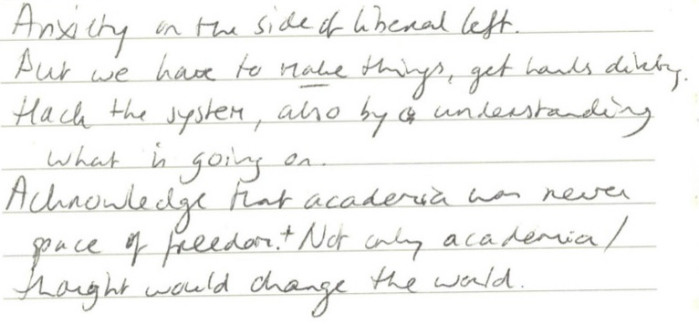 Anxiety on the side of liberal left.
But we have to make things, get hands dirty.
Hack the system, also by understanding
what is going on.
Acknowledge that academia was never
space of freedom. + Not only academia/
thought would change the world.